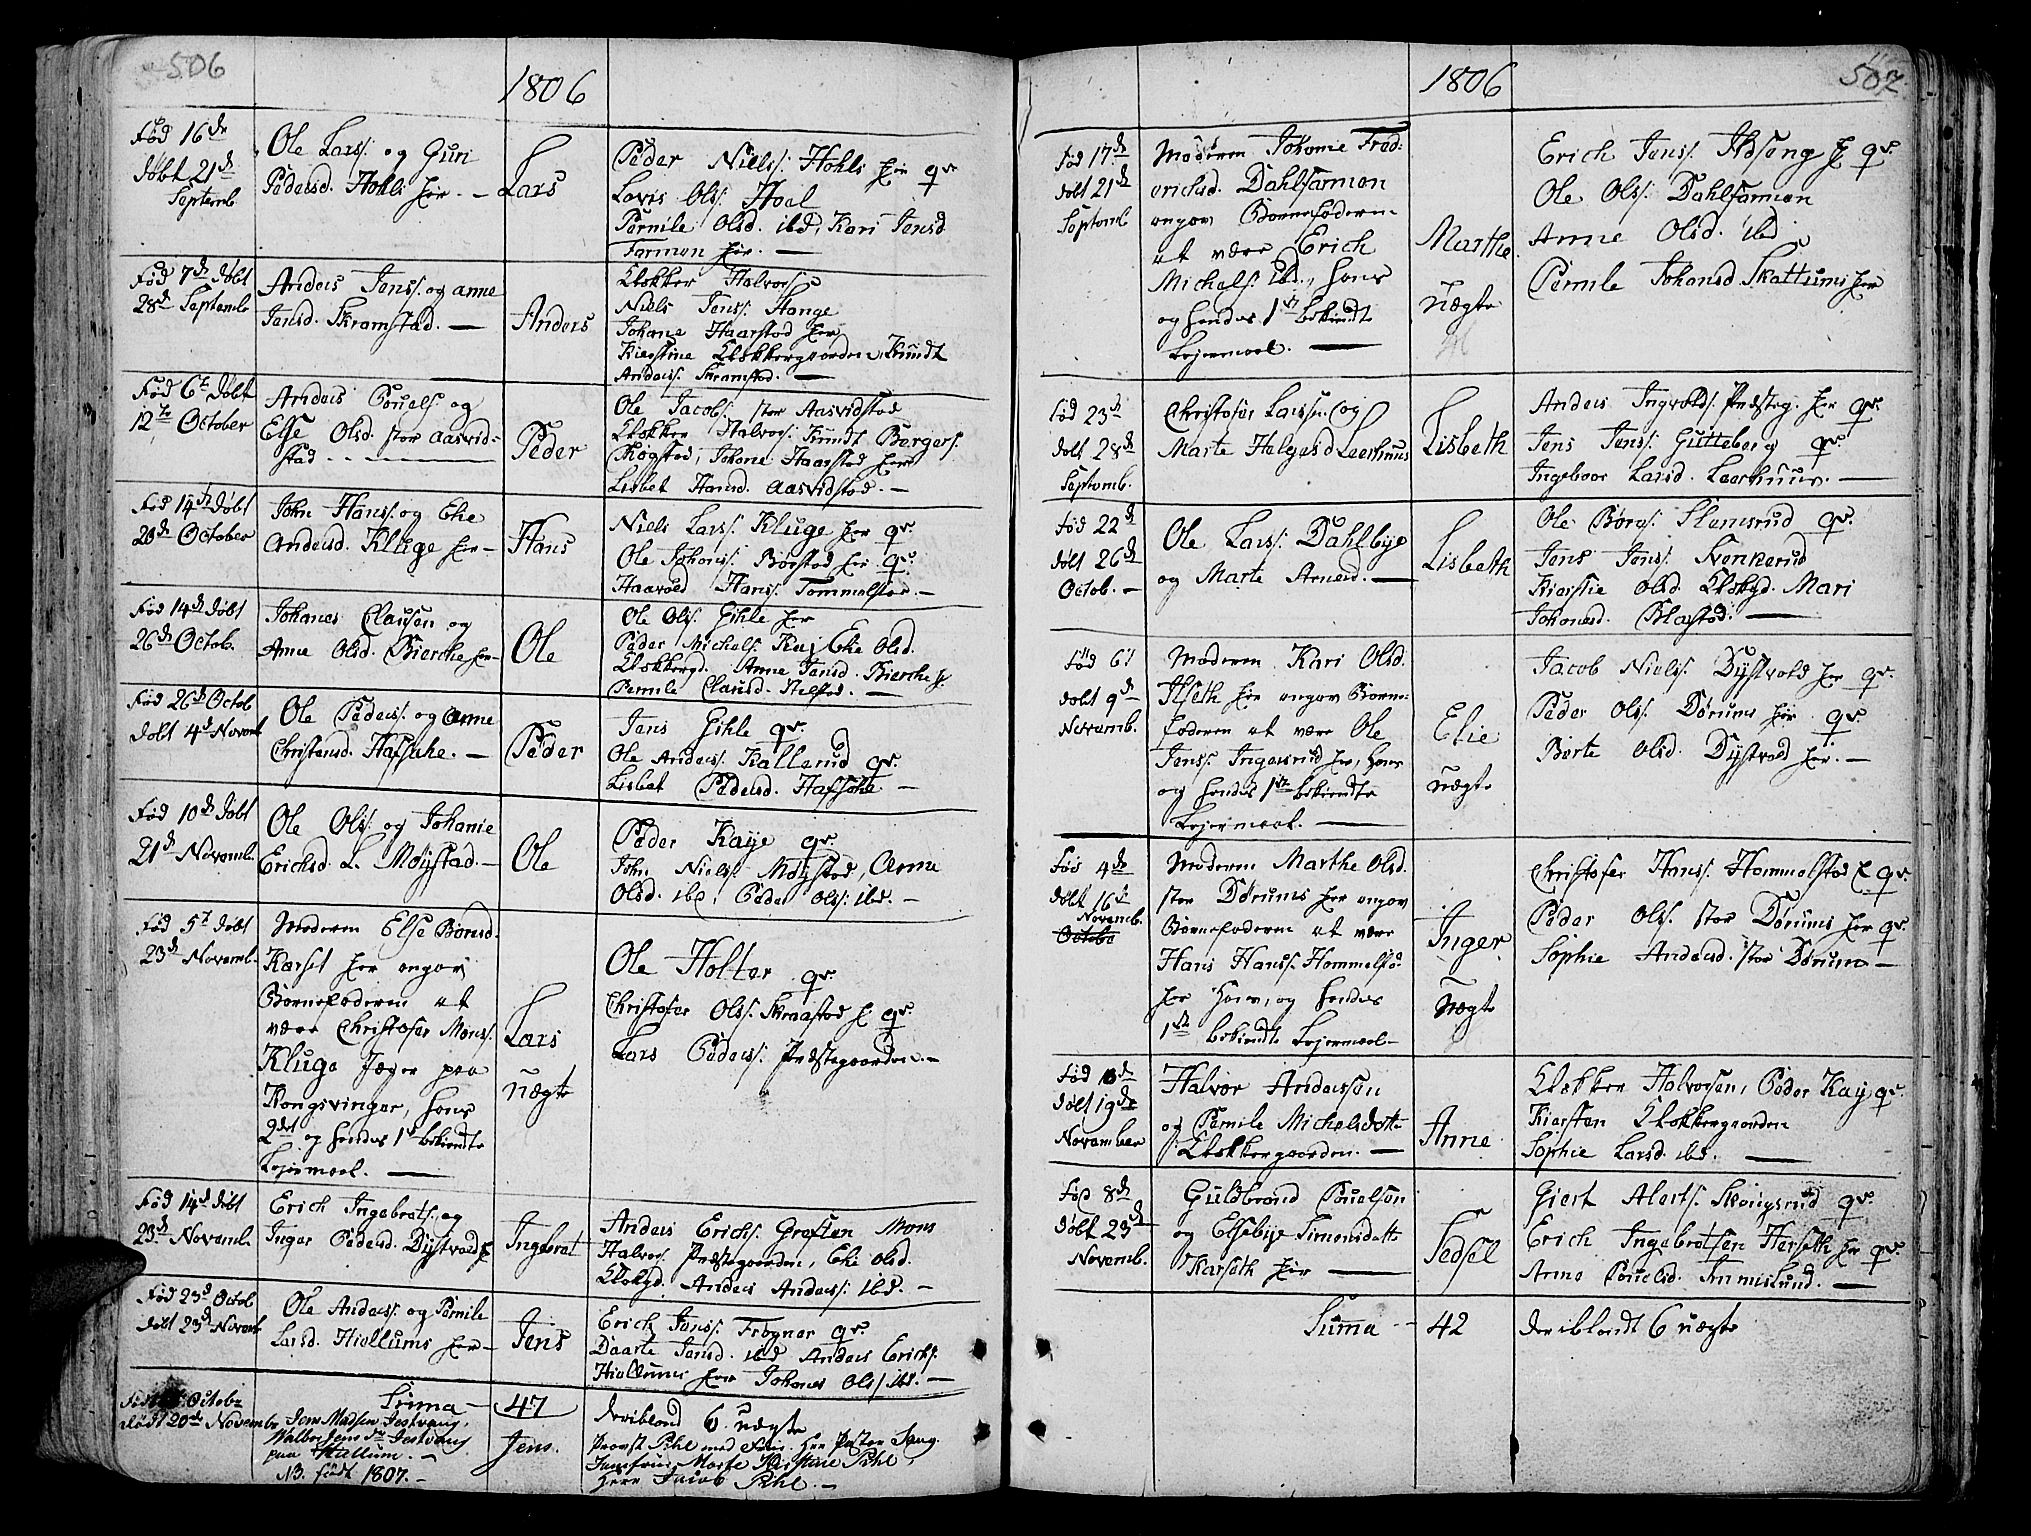 506
1806
Fød 16de
døbt 21d
Septemb
Ole Lars: og Guri
Pedersd. Hohls her. —
Lars
Peder Niels: Hohls her qr.
Lovis Ols: Hoel
Pernile Olsd. ibd, Kari Jensd
Farmen her. —
Fød 7de døbt
28d Septemb
Anders Jens: og Anne
Jensd. Skramstad. —
Anders
Klokker Halvors:
Niels Jens: Stange
Johane Haarstad her
Kierstine Klokkergaarden, Knudt
Anders: Skramstad. —
Fød 6t døbt
12te October
Anders Pouels: og
Else Olsd. stor Aasvid-
stad
Peder
Ole Jacobs: stor Aasvidstad
Klokker Halvors: Knudt Borgers:
Kogstad, Johane Haarstad her
Lisbet Hansd. Aasvidstad. —
Fød 14de døbt
20de October
John Hans: og Elie
Andersd. Kluge her —
Hans
Niels Lars: Kluge her qr.
Ole Johans: Børstad her qr.
Haavold Hans: Tommelstad. —
Fød 14de døbt
26de Octob.
Johanes Clausen og
Anne Olsd. Bierche her
Ole
Ole Ols: Gihle her
Peder Michels: Kaj Elie Olsd.
Klokkergd. Anne Jensd. Bierche h.
Pernile Clausd. Alstad. —
Fød 26de Octob
døbt 4de Novemb
Ole Peders: og Anne
Christensd. Hafsahe. —
Peder
Jens Gihle qr.
Ole Anders: Kallerud qr.
Lisbet Pedersd. Hafsahe —
Fød 10de døbt
21de Novemb.
Ole Ols: og Johanie
Erichsd. L. Møystad. —
Ole
Peder Kaye qr.
John Niels: Møystad, Anne
Olsd. ibd, Peder Ols: ibd. —
Fød 5t døbt
23de Novemb.
Moderen Else Børresd.
Karset her angav
Barnefaderen at
være Christofer Mons:
Kluge Jæger paa
Kongsvinger, hans
2det og hendes 1te bekiendte
Lejermaal. —
Lars
uægte
Ole Holter qr.
Christofer Ols: Skraastad h qr.
Lars Peders: Præstegaarden. —
Fød 14de døbt
23de Novemb.
Erich Ingebrets: og
Inger Pedersd. Dystvold h
Ingebret
Anders Erichs: Grøften Mons
Halvors: Præstegaarden, Elie Olsd.
Klokgd. Anders Anders: ibd. —
Fød 23d Octob
døbt 23d Novemb
Ole Anders: og Pernile
Larsd. Hiellums her —
Jens
Erich Jens: Frogner qr.
Daarte Jensd. ibd Anders Erichs:
Hiellums her Johanes Ols: ibd. —
Suma — 47 deribland 6 uægte
Octobr
døbt 20de Novembr
Jens Madsen Jestvang,
Walbor Jensdr Jestvang
paa Hallum. —
NB. født 1807. —
Jens.
Provst Pihl med Frue. Herr Pastor Sang
Jomfrue Marte Kirstine Pihl,
Herr Jacob Pihl. —
507
1806
Fød 17de
døbt 21de
Septemb
Moderen Johanne Fred-
erichsd. Dahlfarmen
angav Barnefaderen
at være Erich
Michels: ibd., hans
og hendes 1te bekiendte
Lejermaal. —
Marthe
uægte
Erich Jens: Ilseng h qr.
Ole Ols: Dahlfarmen
Anne Olsd. ibd
Pernile Johansd. Skattums her
Fød 23de
døbt 28de
Septemb.
Christofer Larsen og
Marte Helgesd Leerhuus
Lisbeth
Anders Ingvolds: Præsteg. her qr.
Jens Jens: Gutteberg qr.
Ingebor Larsd. Leerhuus. —
Fød 22de
døbt 26de
Octob. —
Ole Lars: Dahlbye
og Marte Arnesd. —
Lisbeth
Ole Børs: Slemsrud qr.
Jens Jens: Svenkerud
Kierstie Olsd. Klokgd. Mari
Johanesd. Blæstad. —
Fød 6t
døbt 9de
Novemb.
Moderen Kari Olsd.
Ilseth her angav Barne-
faderen at være Ole
Jens: Ingersrud her, hans
og hendes 1te bekiendte
Lejermaal. —
Elie
uægte
Jacob Niels: Dystvold her qr.
Peder Ols: Dørums her qr.
Berte Olsd. Dystvold her. —
Fød 4de
døbt 16d
Novemb.
Octobe
Moderen Marthe Olsd.
stor Dørums her angav
Barnefaderen at være
Hans Hans: Hommelstad
her hans, og hendes
1te bekiendte Lejermaal —
Inger
uægte
Christofer Hans: Hommelstad h qr.
Peder Ols: stor Dørums her qr.
Sophie Andersd. stor Dørum —
Fød 6de
døbt 19de
November
Halvor Andersen
og Pernile Michelsdatte
Klokkergaarden. —
Anne
Klokker Halvorsen, Peder Kay qr.
Kiersten Klokkergaarden
Sophie Larsd. ibd. —
Fød 8de
døbt 23de
Novemb.
Guldbrand Pouelsen
og Elsebye Simonsdatte
Karseth her —
Sedsel
Giert Alerts: Skougsrud qr.
Erich Ingebretsen Herseth her qr.
Anne Pouelsd. Inmislund. —
Suma — 42 deriblandt 6 uægte